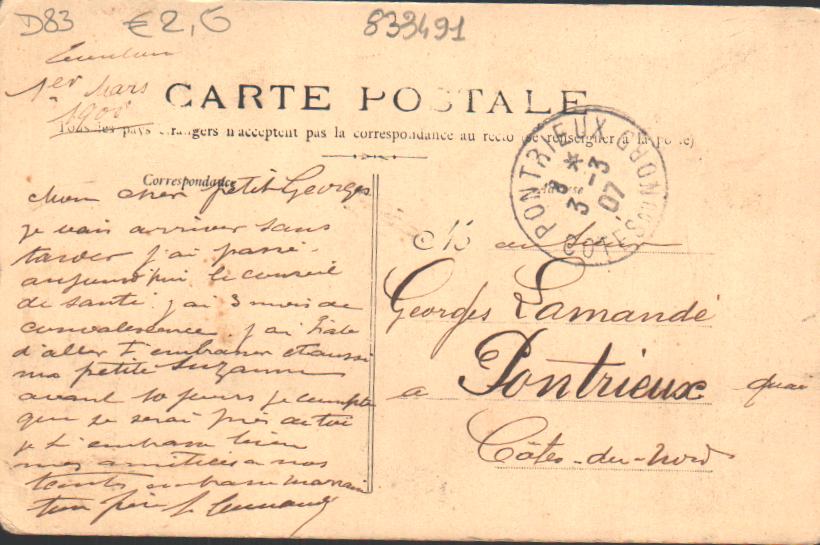 D83 €2,6 833491
1er Mars
CARTE POSTALE
Tous les pays étrangers n'acceptent pas la correspondance au recto (se renseigner à la poste)
Correspondance
Adresse
PONTRIEUX COTES DU NORD
3 -3
07
Mon cher petit Georges
je vais arriver sans
tarder j'ai passé
aujourd'hui le conseil
de santé j'ai 3 mois de
convalescence j'ai hâte
d'aller t'embrasser et aussi
ma petite Suzanne
avant 10 jours je compte
que je serai près de toi
je t'embrasse bien
mes amitiés a nos
tantes embrasse maman
ton père
Monsieur
Georges Lamandé
a Pontrieux quai
Côtes-du-Nord